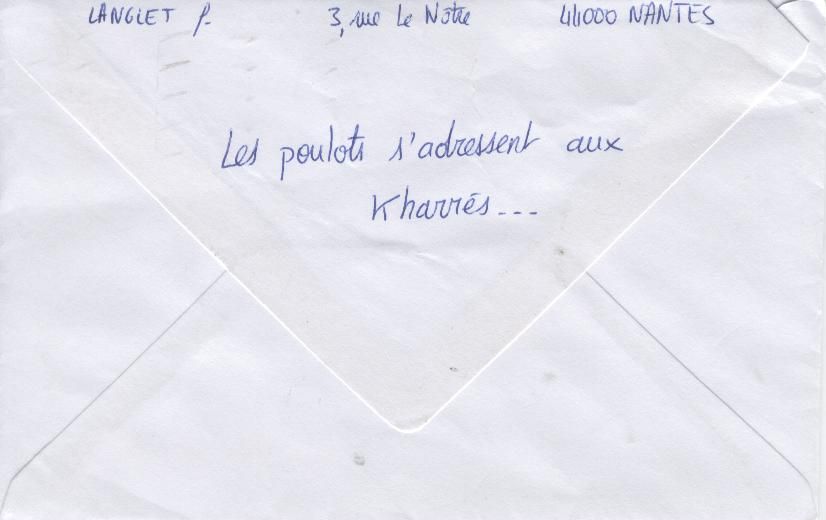 LANGLET P. 3, rue Le Nôtre 44000 NANTES
Les poulots s'adressent aux
Kharrés...